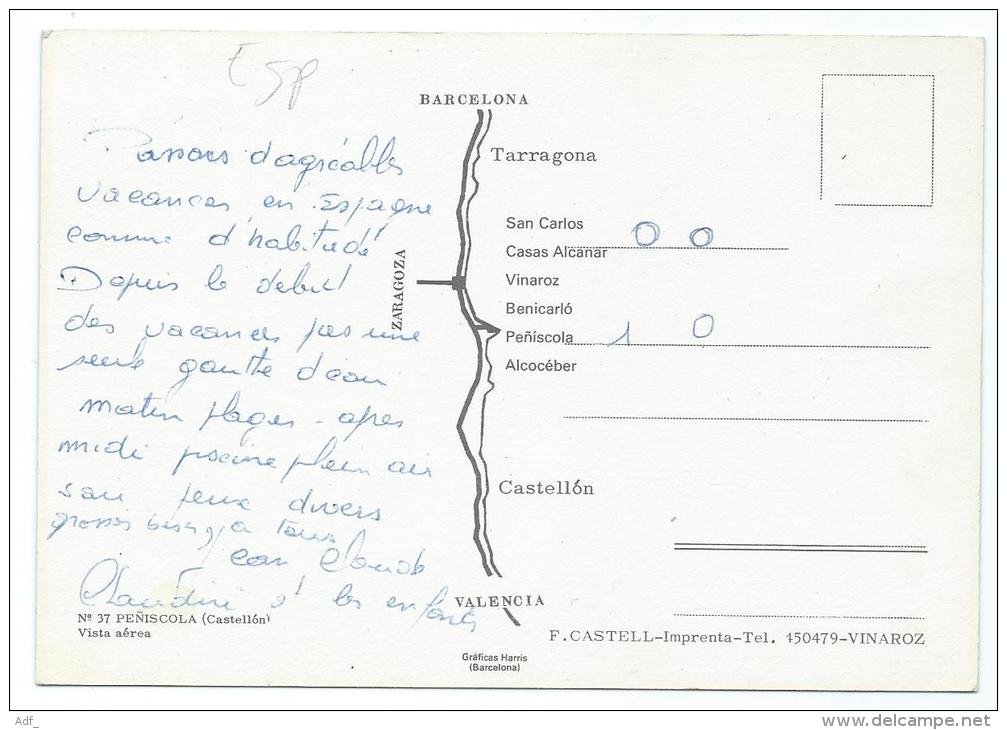 Esp
Passons d'agréables
vacances en Espagne
comme d'habitude
Depuis le debut
des vacances pas une
seule goutte d'eau
matin plages - apres
midi piscine plein air
soir jeux divers
grosses bises a tous
Jean Claude
Claudine et les enfants
BARCELONA
Tarragona
San Carlos
Casas Alcanar
Vinaroz
Benicarló
Peñíscola
Alcocéber
0 0
1 0
ZARAGOZA
Castellón
VALENCIA
Nº 37 PEÑISCOLA (Castellón)
Vista aérea
F. CASTELL-Imprenta-Tel. 450479-VINAROZ
Gráficas Harris
(Barcelona)
Adf_
www.delcampe.net